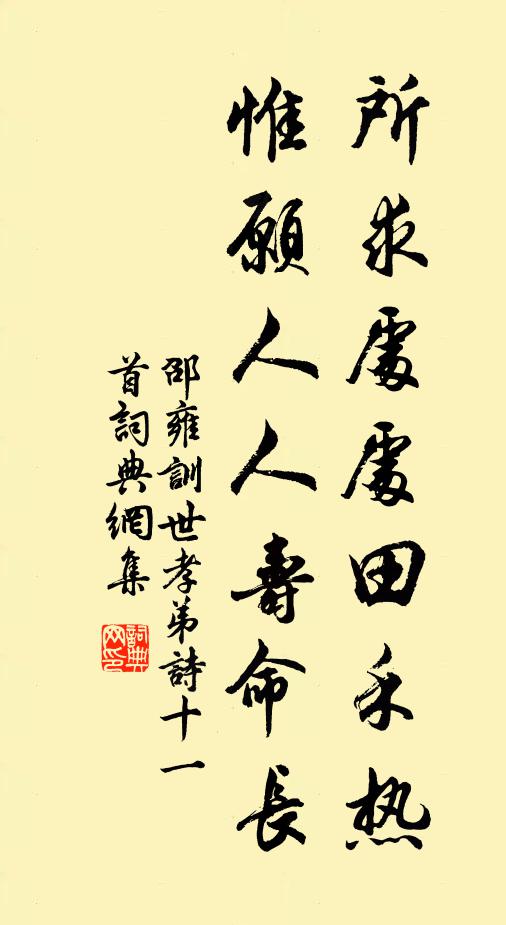 所求處處田禾热
惟願人人壽命長
邵雍訓世孝弟詩十一
首詞典網集
詞典
网印